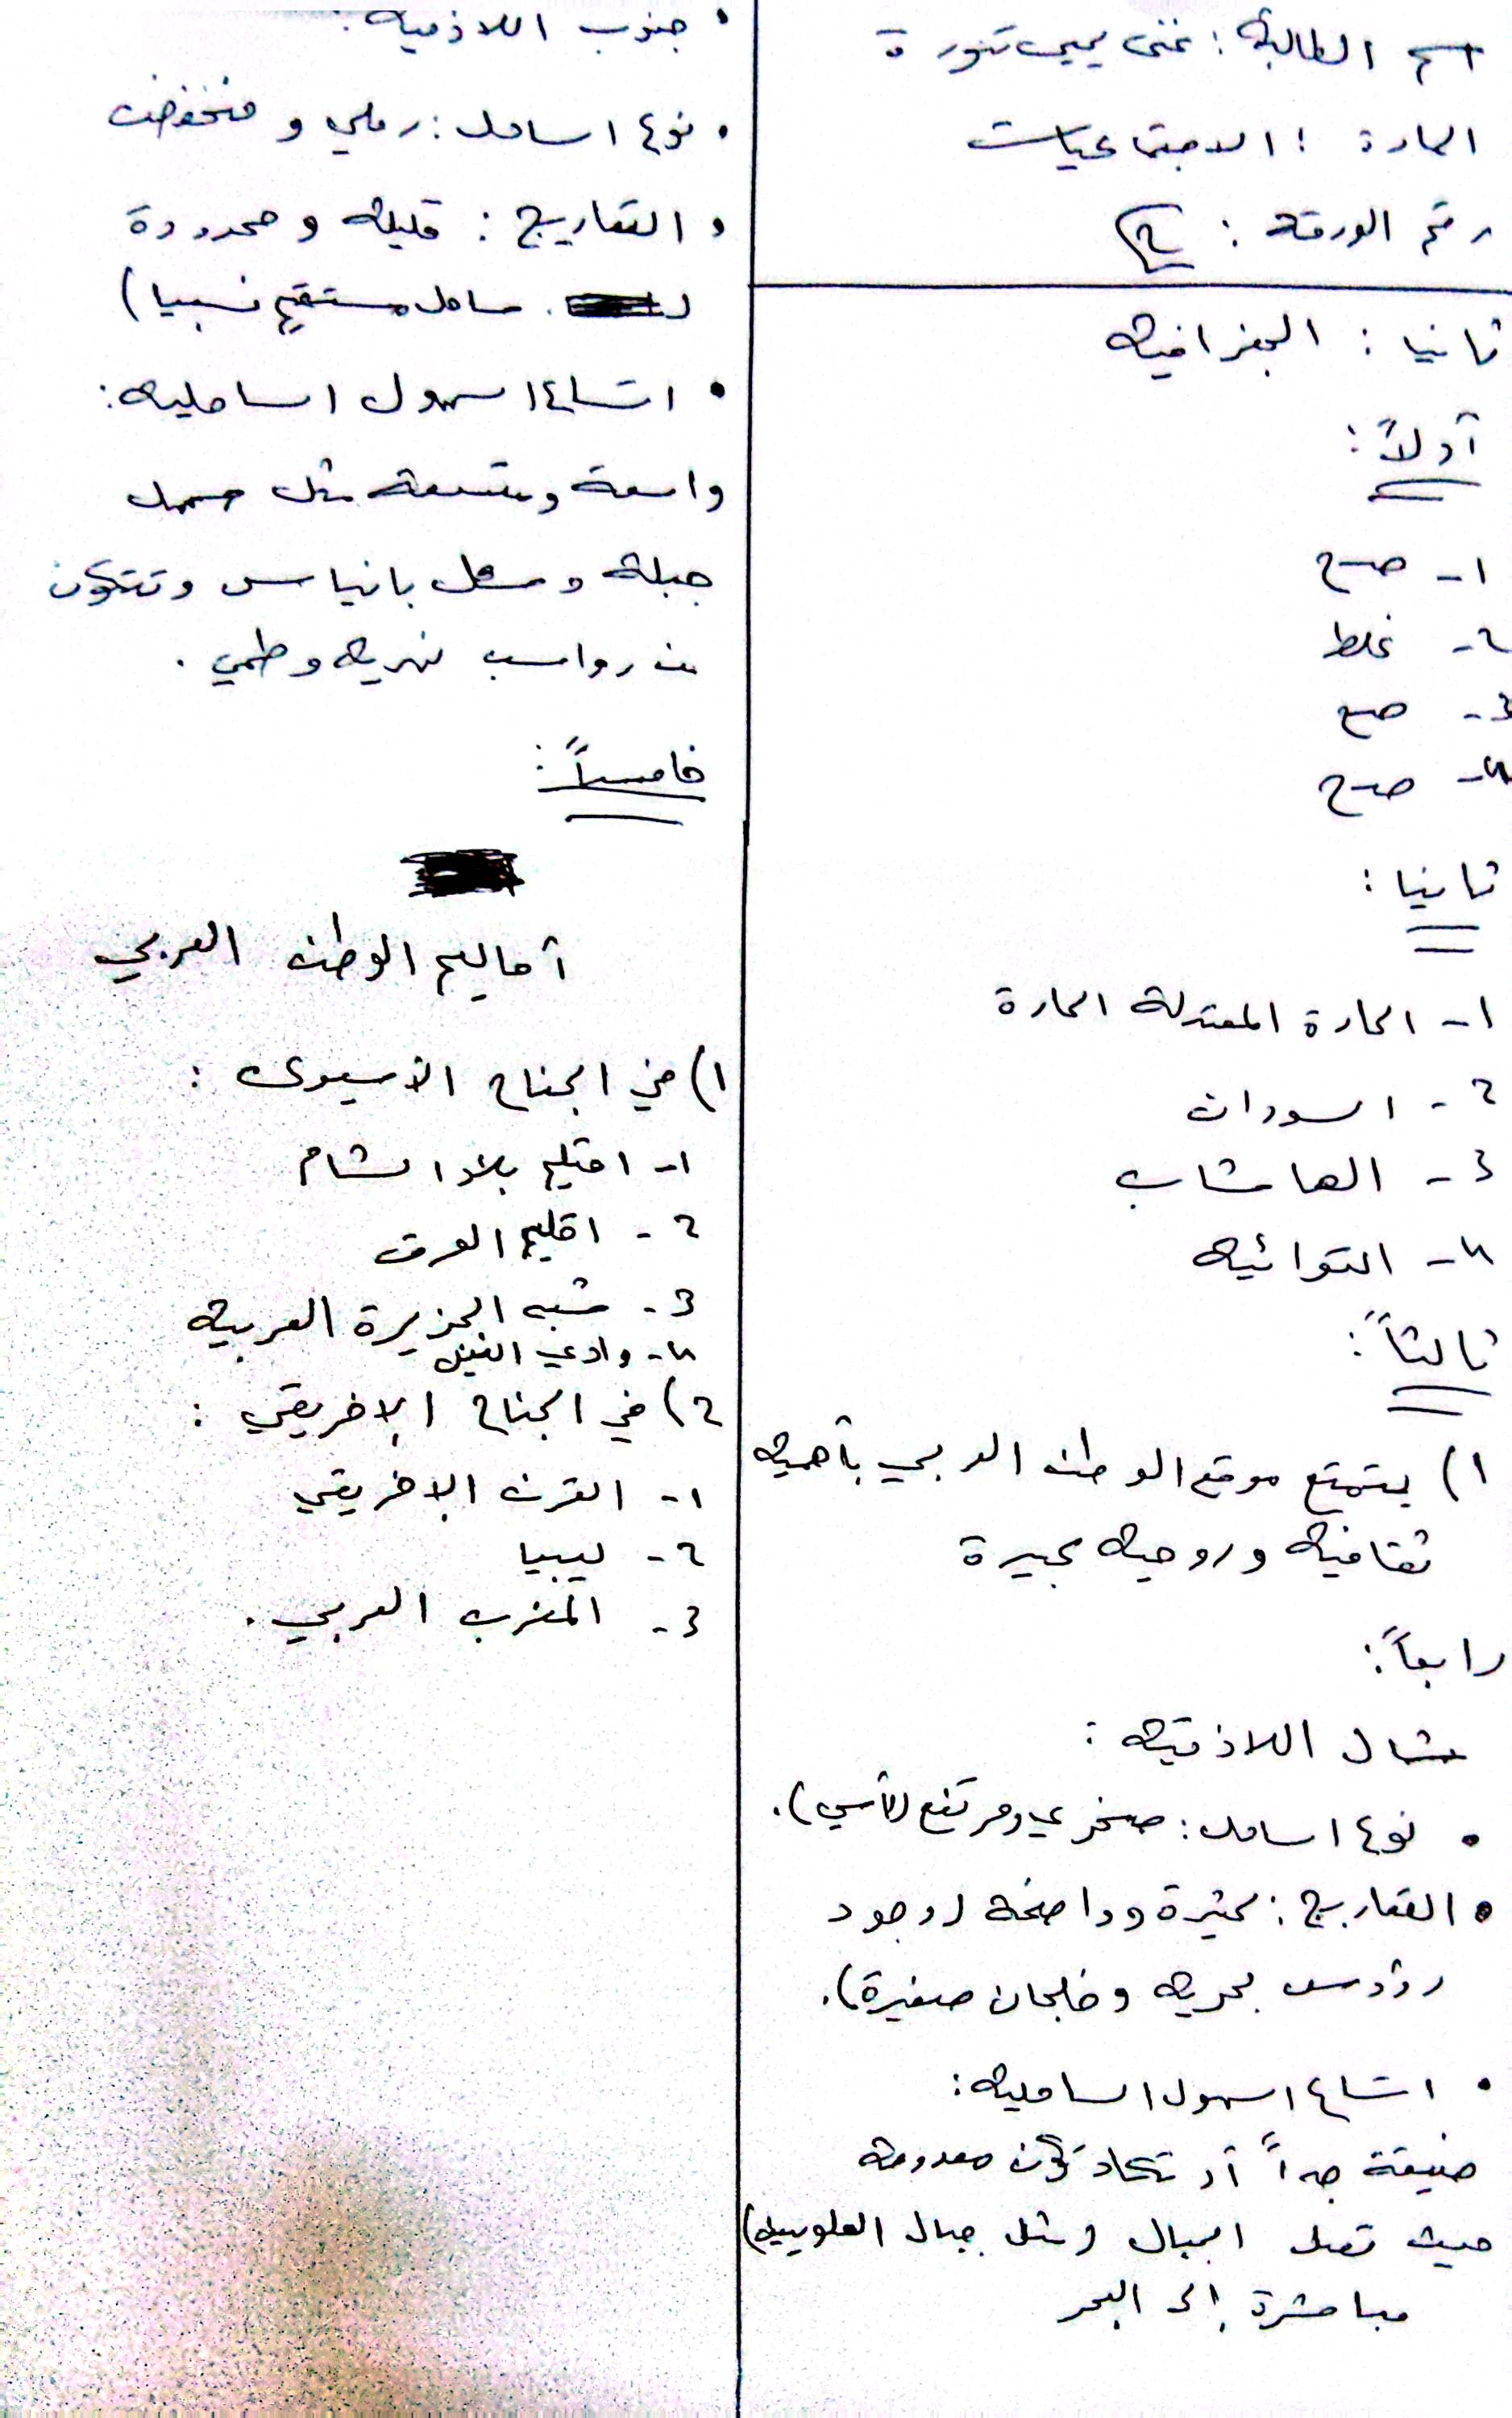 اسم الطالبة: غنى يحيى تنورة
المادة: الاجتماعيات
رقم الورقة: 2
ثانيا: الجغرافية
أولاً:
1- صح
2- غلط
3- صح
4- صح
ثانيا:
1- الحارة المعتدلة الحارة
2- السودان
3- الهاشاب
4- التوائية
ثالثاً:
1) يتمتع موقع الوطن العربي بأهمية
ثقافية وروحية كبيرة
رابعاً:
شمال اللاذقية:
• نوع الساحل: صخري ومرتفع (رأسي).
• التعاريج: كثيرة وواضحة (وجود
رؤوس بحرية وخلجان صغيرة).
• اتساع السهول الساحلية:
ضيقة جداً أو تكاد تكون معدومة
حيث تصل الجبال (مثل جبال العلويين)
مباشرة إلى البحر
• جنوب اللاذقية:
• نوع الساحل: رملي و منخفض
• التعاريج: قليلة و محدودة
( ساحل مستقيم نسبيا)
• اتساع السهول الساحلية:
واسعة ومتسعة مثل سهل
جبلة وسهل بانياس وتتكون
من رواسب نهرية وطمي.
خامساً:
أقاليم الوطن العربي
1) في الجناح الآسيوي:
1- اقليم بلاد الشام
2- اقليم العرق
3- شبه الجزيرة العربية
4- وادي النيل
2) في الجناح الإفريقي:
1- القرن الإفريقي
2- ليبيا
3- المغرب العربي.